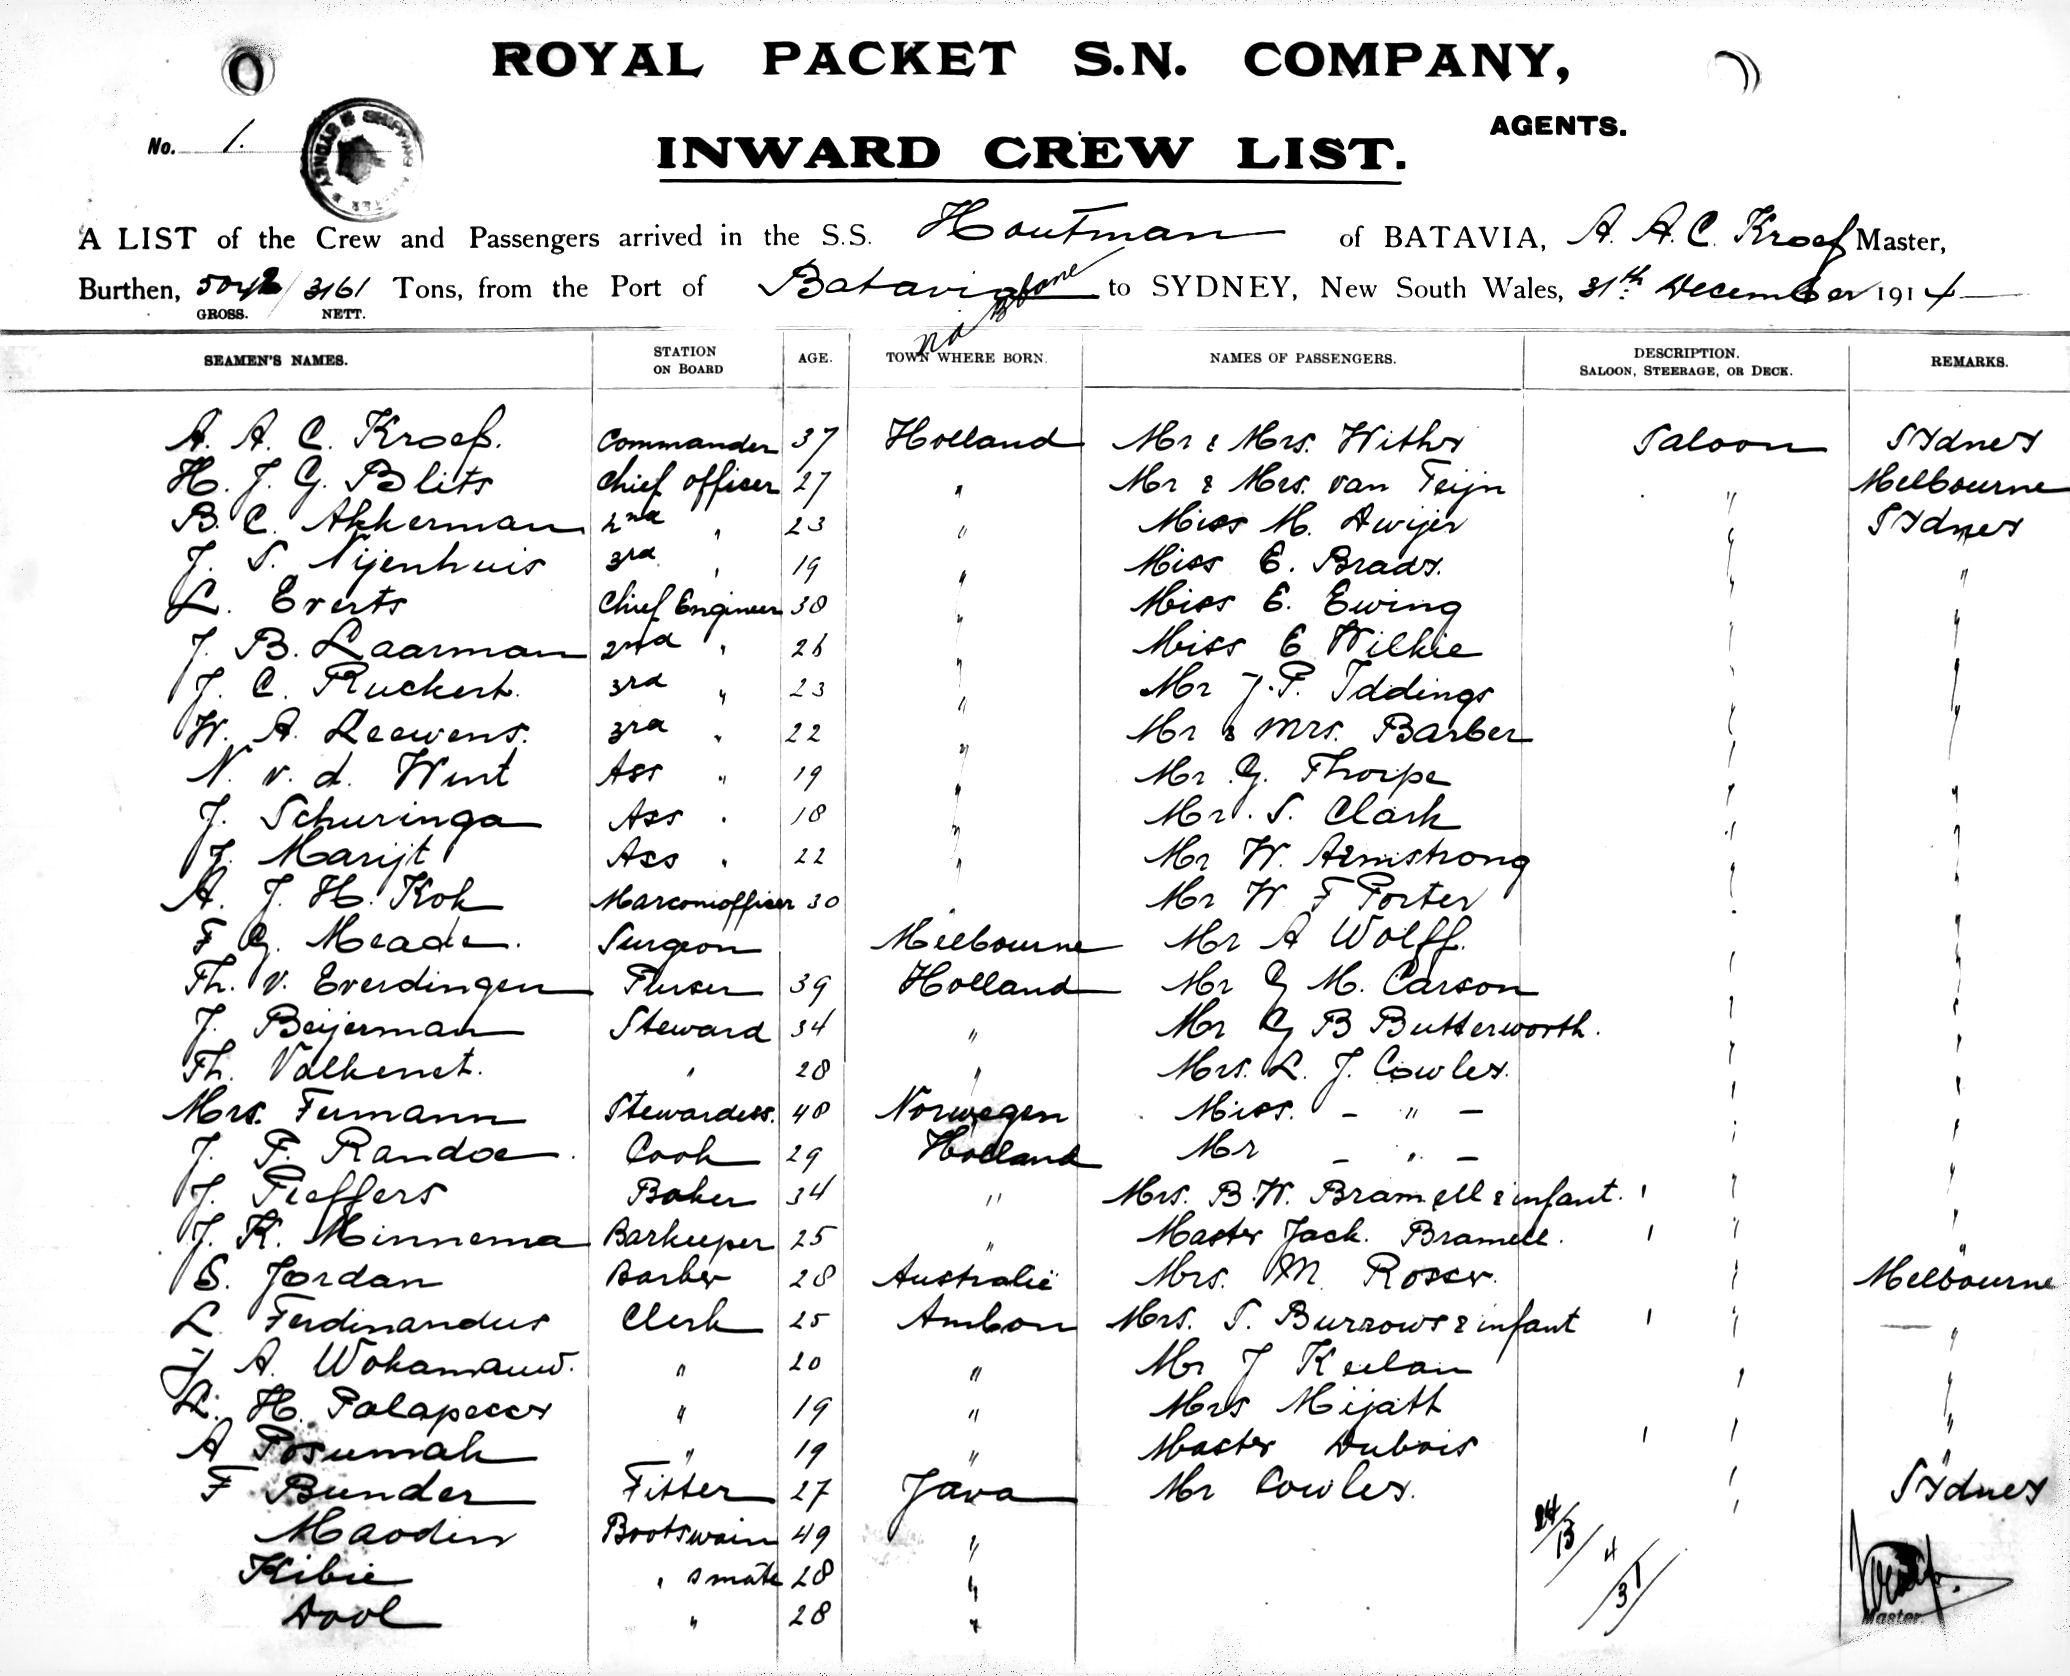 ROYAL PACKET S.N. COMPANY,
AGENTS.
No. 1.
INWARD CREW LIST.
A LIST of the Crew and Passengers arrived in the S.S. Houtman of BATAVIA, A. A. C. Kroef Master,
Burthen, 3161 Tons, from the Port of Batavia to SYDNEY, New South Wales, 31th December 1914
GROSS. NETT.
SEAMEN'S NAMES. STATION ON BOARD AGE. TOWN WHERE BORN. NAMES OF PASSENGERS. DESCRIPTION. SALOON, STEERAGE, OR DECK. REMARKS.
A. A. C. Kroef. Commander 37 Holland Mr & Mrs. Withy Saloon Sydney
H. J. G. Blits Chief officer 27 " Mr & Mrs. van Teijn " Melbourne
B. C. Akkerman 2nd " 23 " Miss M. Dwijer " Sydney
J. S. Nijenhuis 3rd " 19 " Miss E. Brady. " "
L. Everts Chief Engineer 38 " Miss E. Ewing " "
J. B. Laarman 2nd " 26 " Miss E Wilkie " "
J. C. Ruckert. 3rd " 23 " Mr J. P. Iddings " "
W. A. Leewens. 3rd " 22 " Mr & Mrs. Barber " "
N. v. d. Wint Ass " 19 " Mr G. Thorpe " "
J. Schuringa Ass " 18 " Mr. S. Clark " "
J. Marijt Ass " 22 " Mr W. Armstrong " "
A. J. H. Kok Marconiofficer 30 " Mr W F Porter " "
F G. Meade. Surgeon Melbourne Mr A Wolff. " "
Th. v. Everdingen Purser 39 Holland Mr G M. Carson " "
J. Beijerman Steward 34 " Mr G B Butterworth. " "
Th. Valkenet. " 28 " Mrs. L. J. Cowley. " "
Mrs. Fumann Stewardess. 48 Norwegen Miss. - " - " "
J. F. Randoe. Cook 29 Holland Mr - " - " "
J. Pieffers Baker 34 " Mrs. B. W. Bramell & infant. 1 " "
J. K. Minnema Barkeeper 25 " Master Jack Bramell. 1 " "
S. Jordan Barber 28 Australië Mrs. M Rosser. " Melbourne
L. Ferdinandus Clerk 25 Ambon Mrs. S. Burrows & infant 1 " "
A. " 20 " Mr J Keelan " "
L. H. " 19 " Mrs Mijatt " "
A Posumah " 19 " Master Dubois 1 " "
F Bunder Fitter 27 Java Mr Cowley. " Sydney
Maodin Bootswain 49 "
Kibie " smate 28 "
Dool " 28 "
24/13/ 4
/31/
Master.